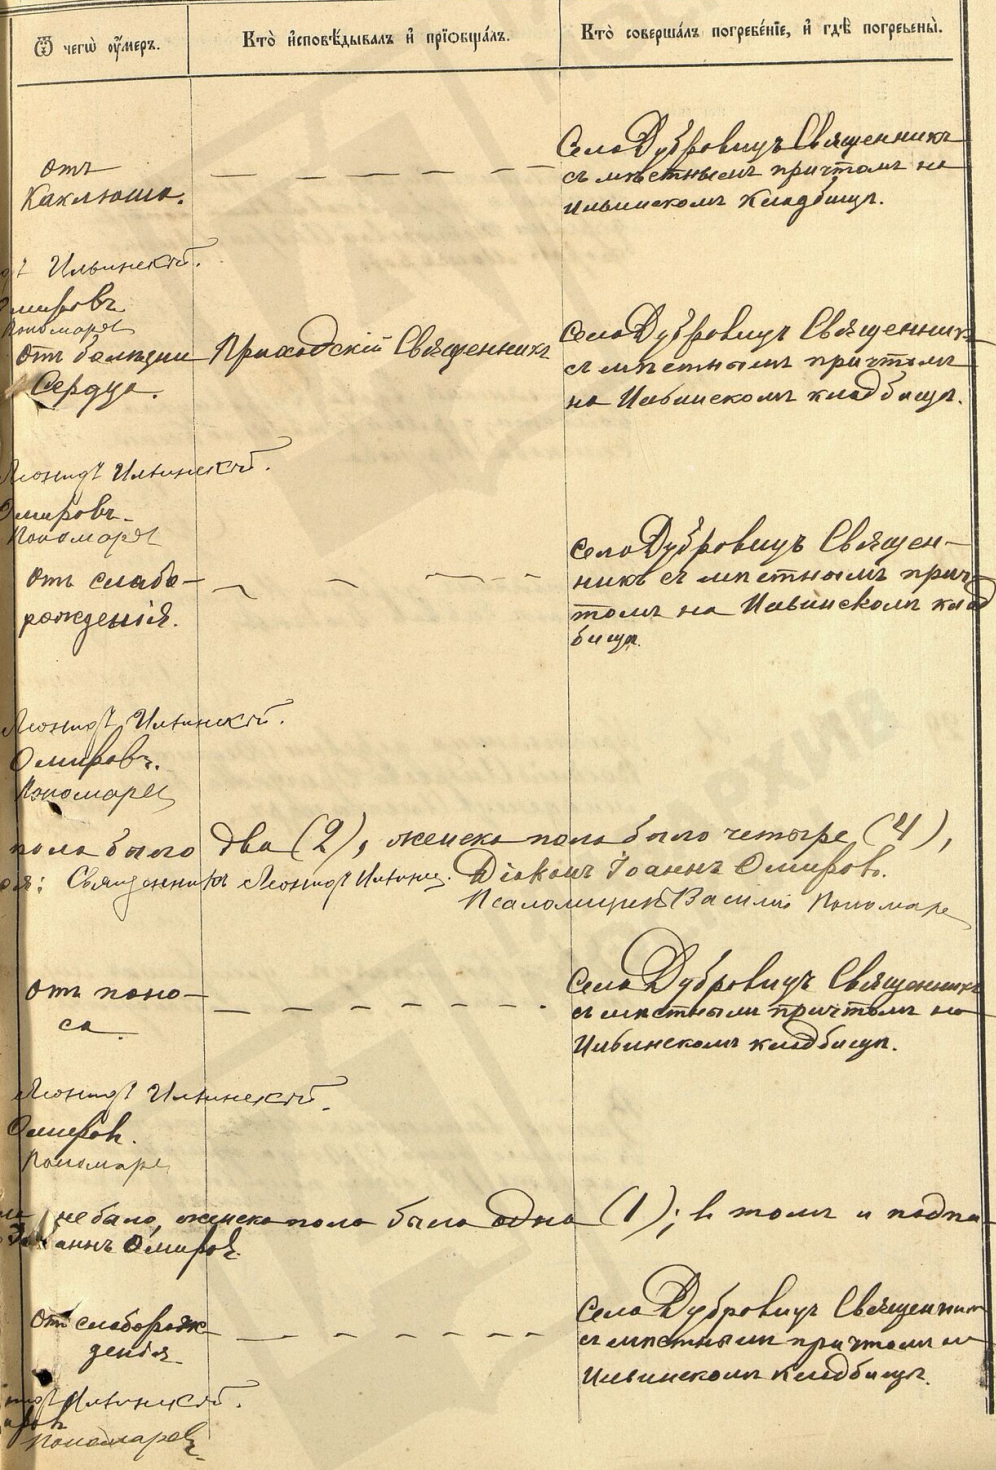 Ѿ чегѡ ᲂу҆́меръ.
Кто̀ и҆сповѣ́дывалъ и҆ прїѻбща́лъ.
Кто̀ соверша́лъ погребе́нїе, и҆ гдѣ̀ погребены̀.
отъ
Каклюша.
Села Дубровицъ Священникъ
съ мѣстнымъ причтомъ на
Ильинскомъ Кладбищѣ.
Ильинскій.
Омировъ
Пономаревъ
Отъ болѣзни
Сердца.
Приходскій Священникъ
Села Дубровицъ Священникъ
съ мѣстнымъ причтомъ
на Ильинскомъ кладбищѣ.
Леонидъ Ильинскій.
Омировъ.
Пономаревъ
Отъ слабо-
рожденія.
Села Дубровицъ Священ-
никъ съ мѣстнымъ прич-
томъ на Ильинскомъ клад
бищѣ.
Леонидъ Ильинскій.
Омировъ.
Пономаревъ
пола было два (2), женска пола было четыре (4),
Священникъ Леонидъ Ильинс. Діаконъ Іоаннъ Омировъ.
Псаломщикъ Василій Пономарев
Отъ поно-
са
Села Дубровицъ Священникъ
съ мѣстнымъ причтомъ на
Ильинскомъ кладбищѣ.
Леонидъ Ильинскій.
Омировъ.
Пономарев
не было, женска пола была одна (1); въ томъ и подпи-
аннъ Омировъ
Отъ слаборож
денія
Села Дубровицъ Священник
съ мѣстнымъ причтомъ на
Ильинскомъ кладбищѣ.
Ильинскій.
Пономаревъ